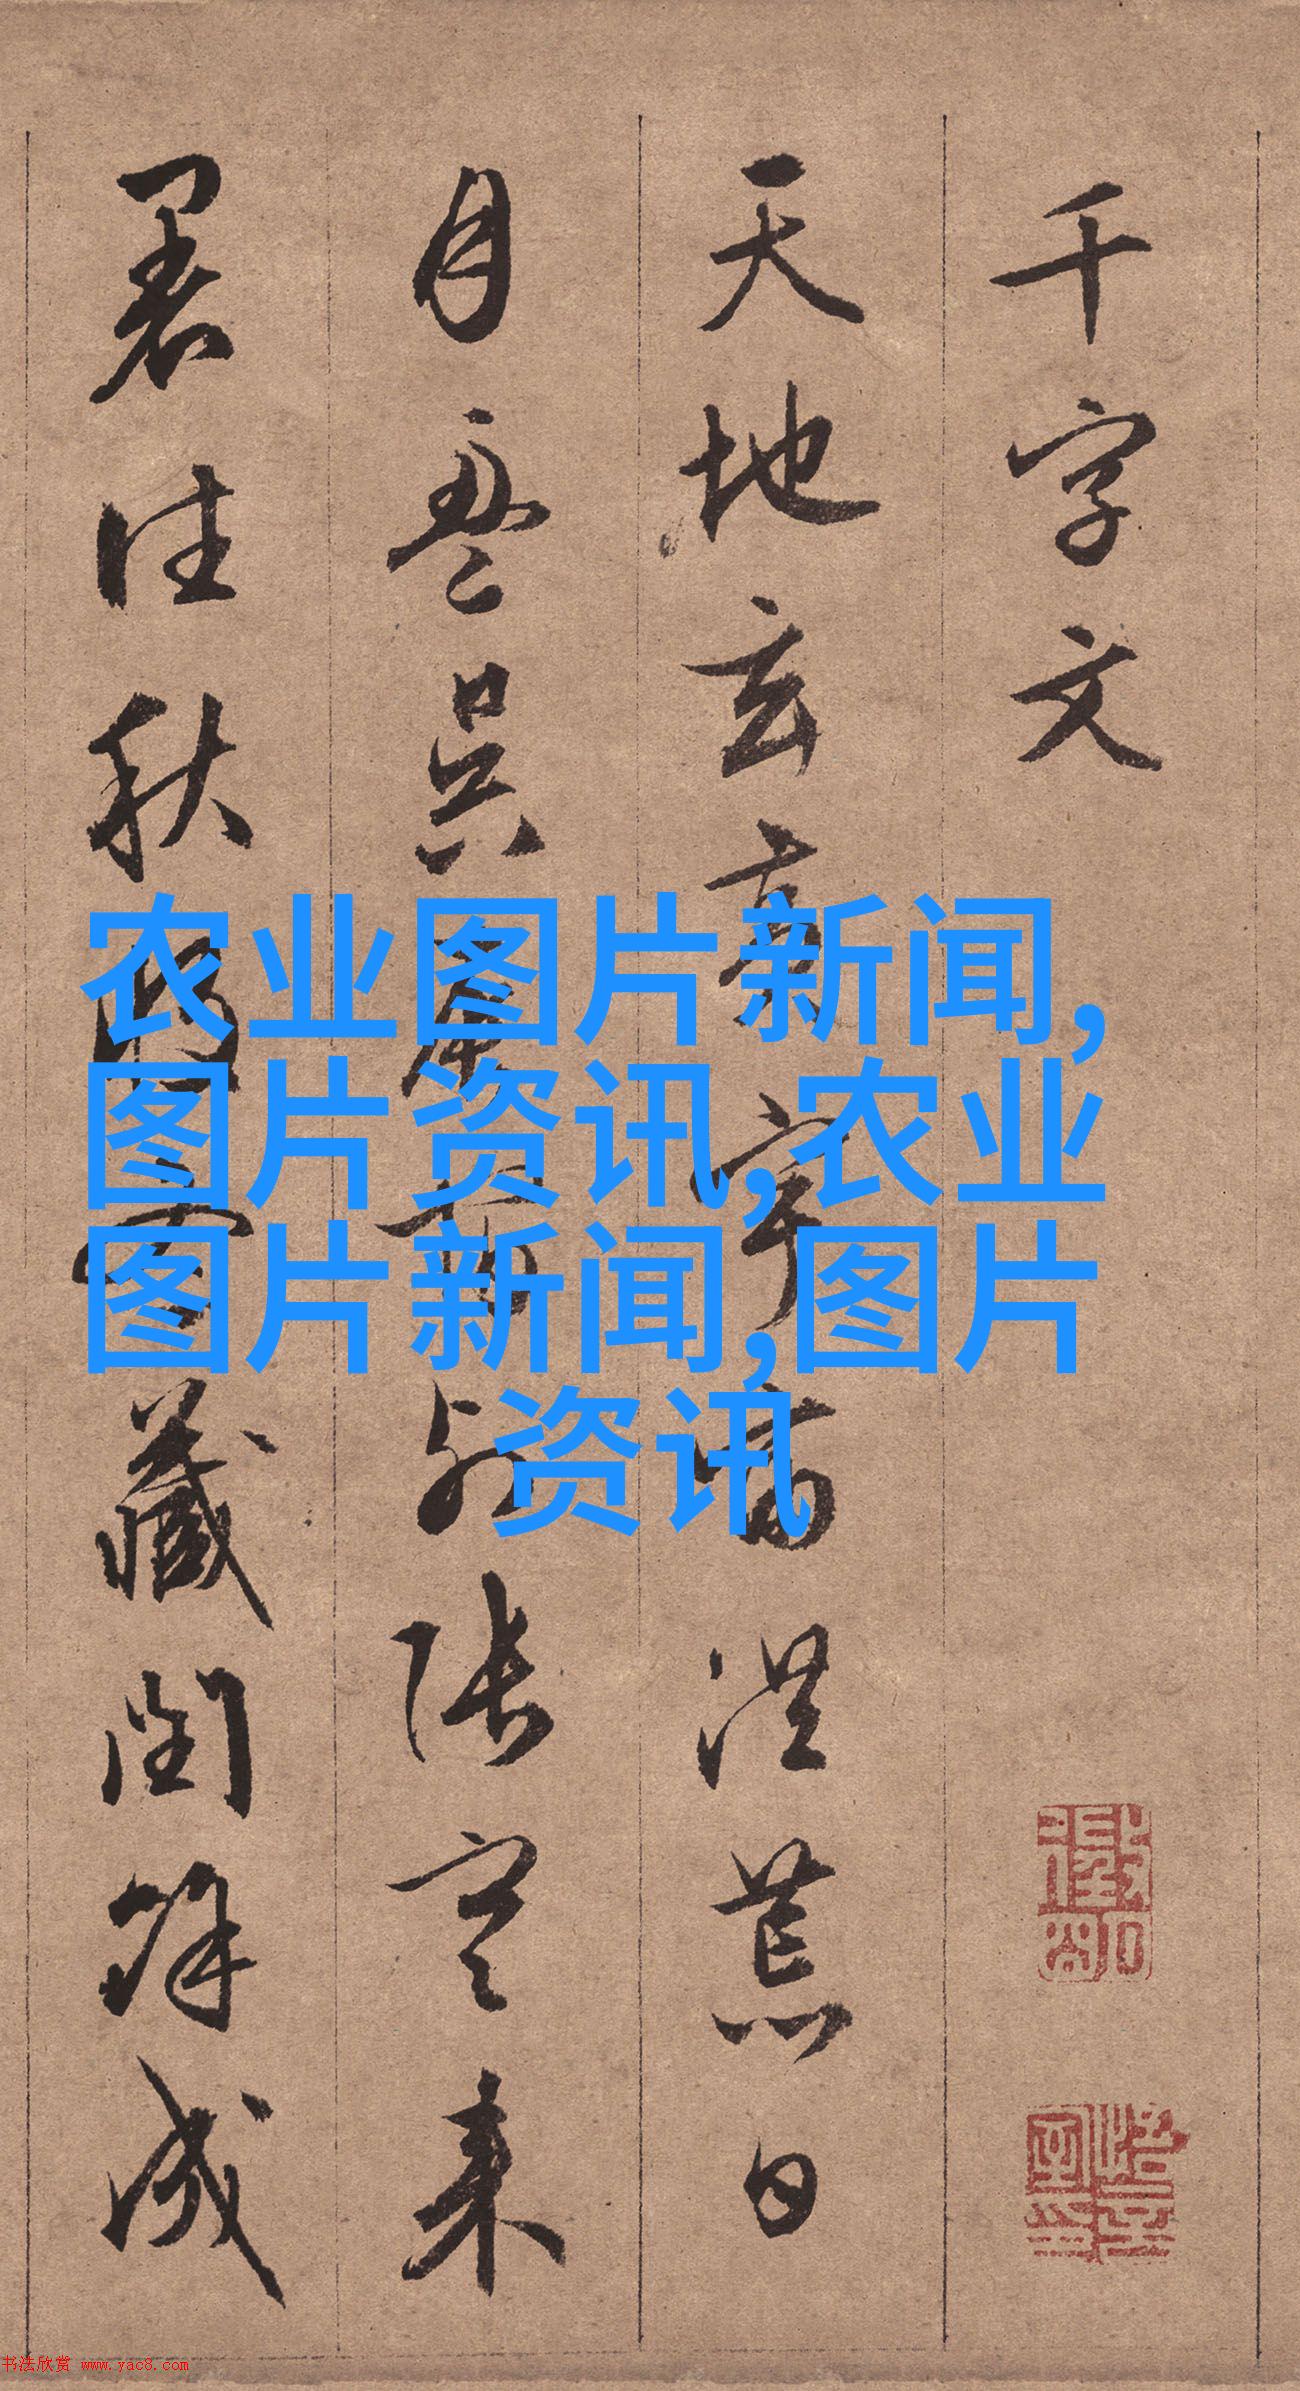 千字文
天地玄黄宇宙洪荒日
月盈昃辰宿列張寒来
暑往秋收冬藏閏餘成
农业图片新闻,
图片资讯,农业
图片新闻,图片
资讯
书法欣赏 www.yac8.com